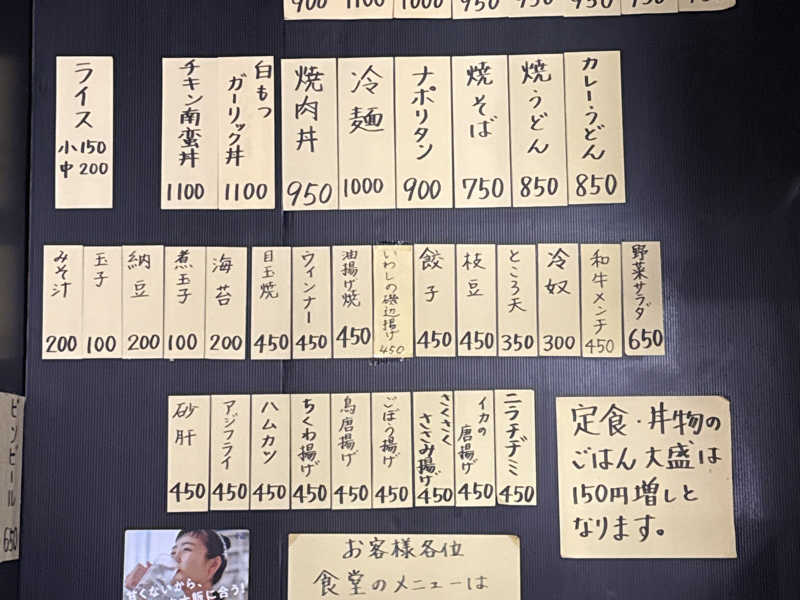 900
1100
1000
950
950
950
950
ライス
小 150
中 200
チキン南蛮丼
1100
白もつ
ガーリック丼
1100
焼肉丼
950
冷麺
1000
ナポリタン
900
焼そば
750
焼うどん
850
カレーうどん
850
みそ汁
200
玉子
100
納豆
200
煮玉子
100
海苔
200
目玉焼
450
ウィンナー
450
油揚げ焼
450
いわしの磯辺揚げ
450
餃子
450
枝豆
450
ところ天
350
冷奴
300
和牛メンチ
450
野菜サラダ
650
砂肝
450
アジフライ
450
ハムカツ
450
ちくわ揚げ
450
鳥唐揚げ
450
ごぼう揚げ
450
さくさく
ささみ揚げ
450
イカの
唐揚げ
450
ニラチヂミ
450
定食・丼物の
ごはん大盛は
150円増しと
なります。
ビンビール
650
甘くないから、
大阪に合う!
お客様各位
食堂のメニューは